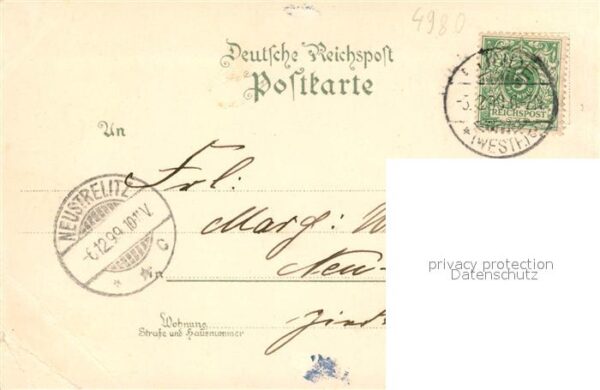 4980
Deutsche Reichspost
Postkarte
5
REICHSPOST
(WESTF.)
An
Frl:
Marg: W
NEUSTRELITZ
-6.12.99.10-11V.
* * C
in Neu-
Wohnung
Straße und Hausnummer
privacy protection
Datenschutz